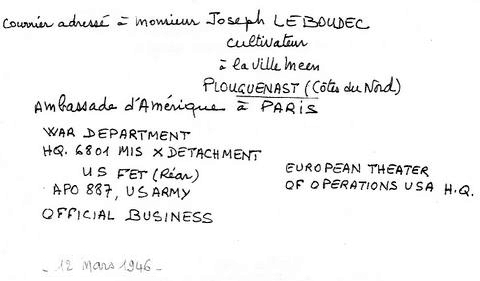 Courrier adressé à Monsieur Joseph LEBOUDEC
cultivateur
à la Ville Meen
PLOUGUENAST (Côtes du Nord)
Ambassade d'Amérique à PARIS
WAR DEPARTMENT
HQ. 6801 MIS X DETACHMENT
US FET (Réar)
APO 887, US ARMY
EUROPEAN THEATER
OF OPERATIONS USA H.Q.
OFFICIAL BUSINESS
- 12 Mars 1946 -